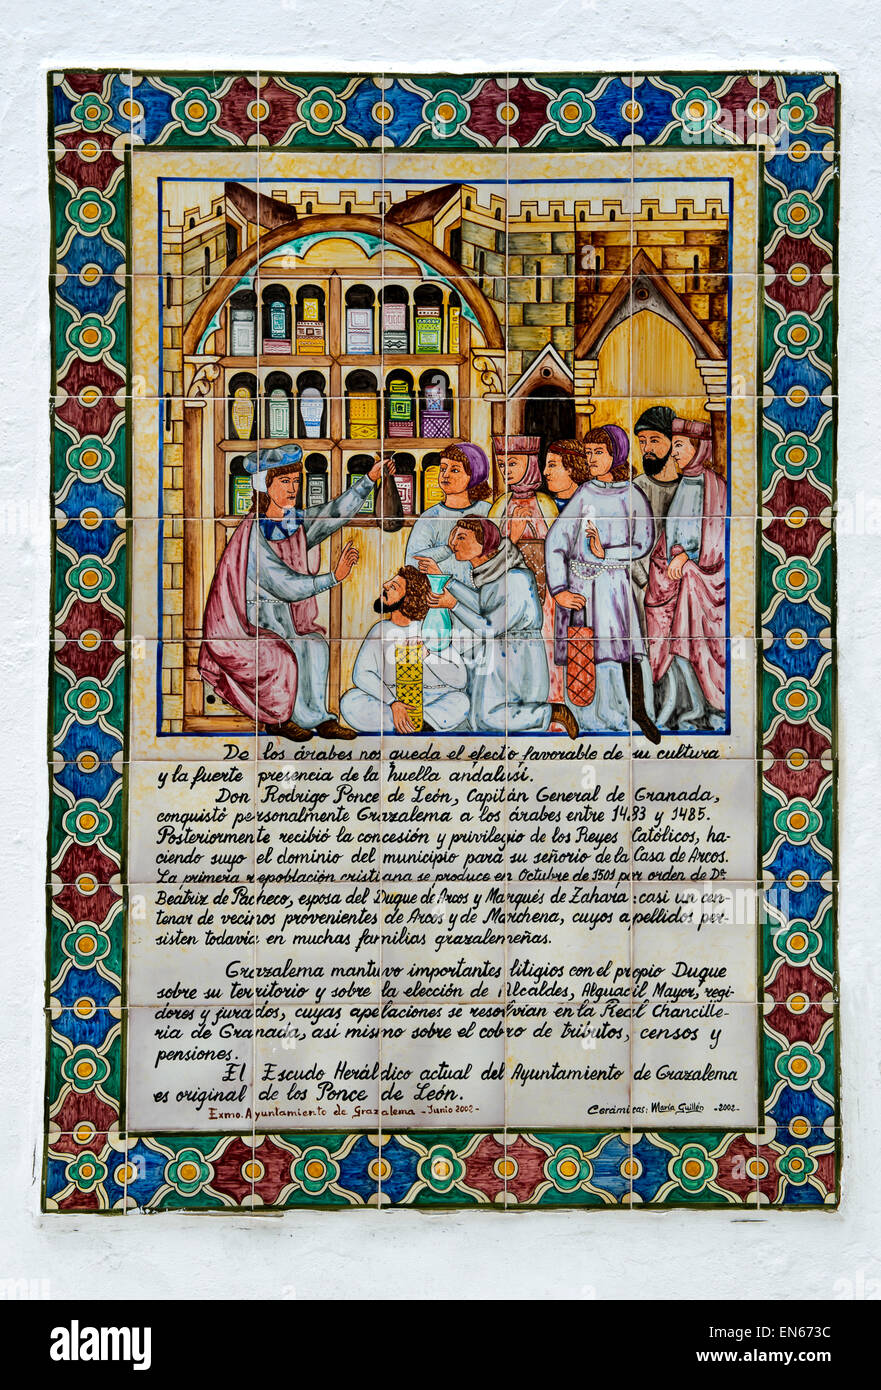 De los árabes nos queda el efecto favorable de su cultura
y la fuerte presencia de la huella andalusí.
Don Rodrigo Ponce de León, Capitán General de Granada,
conquistó personalmente Grazalema a los árabes entre 1483 y 1485.
Posteriormente recibió la concesión y privilegio de los Reyes Católicos, ha-
ciendo suyo el dominio del municipio para su señorio de la Casa de Arcos.
La primera repoblación cristiana se produce en Octubre de 1501 por orden de Dª
Beatriz de Pacheco, esposa del Duque de Arcos y Marqués de Zahara: casi un cen-
tenar de vecinos provenientes de Arcos y de Marchena, cuyos apellidos per-
sisten todavía en muchas familias grazalemeñas.
Grazalema mantuvo importantes litigios con el propio Duque
sobre su territorio y sobre la elección de Alcaldes, Alguacil Mayor, regi-
dores y jurados, cuyas apelaciones se resolvían en la Real Chancille-
ria de Granada, asi mismo sobre el cobro de tributos, censos y
pensiones.
El Escudo Heráldico actual del Ayuntamiento de Grazalema
es original de los Ponce de León.
Exmo. Ayuntamiento de Grazalema - Junio 2002 -
Cerámicas: María Guillén - 2002 -
alamy
a
alamy
Image ID: EN673C
www.alamy.com